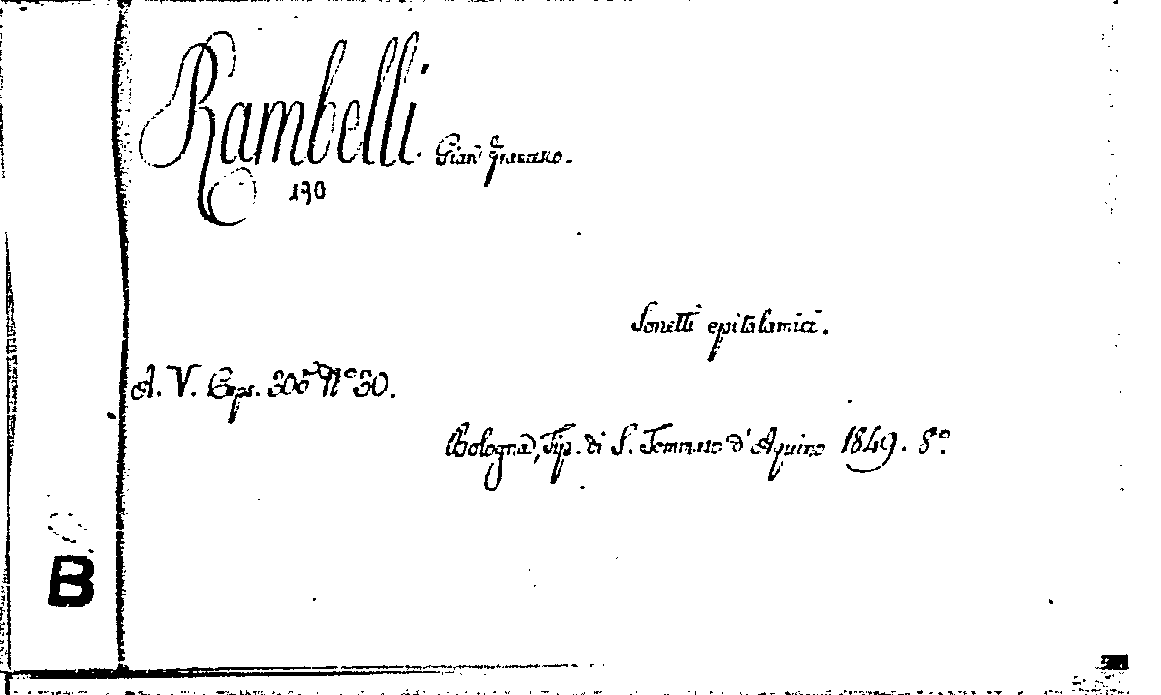 Rambelli Gian Francesco.
190
Sonetti epitalamici.
A. V. Caps. 306 N° 30.
Bologna, Tip. di S. Tommaso d'Aquino 1849. 8°.
B